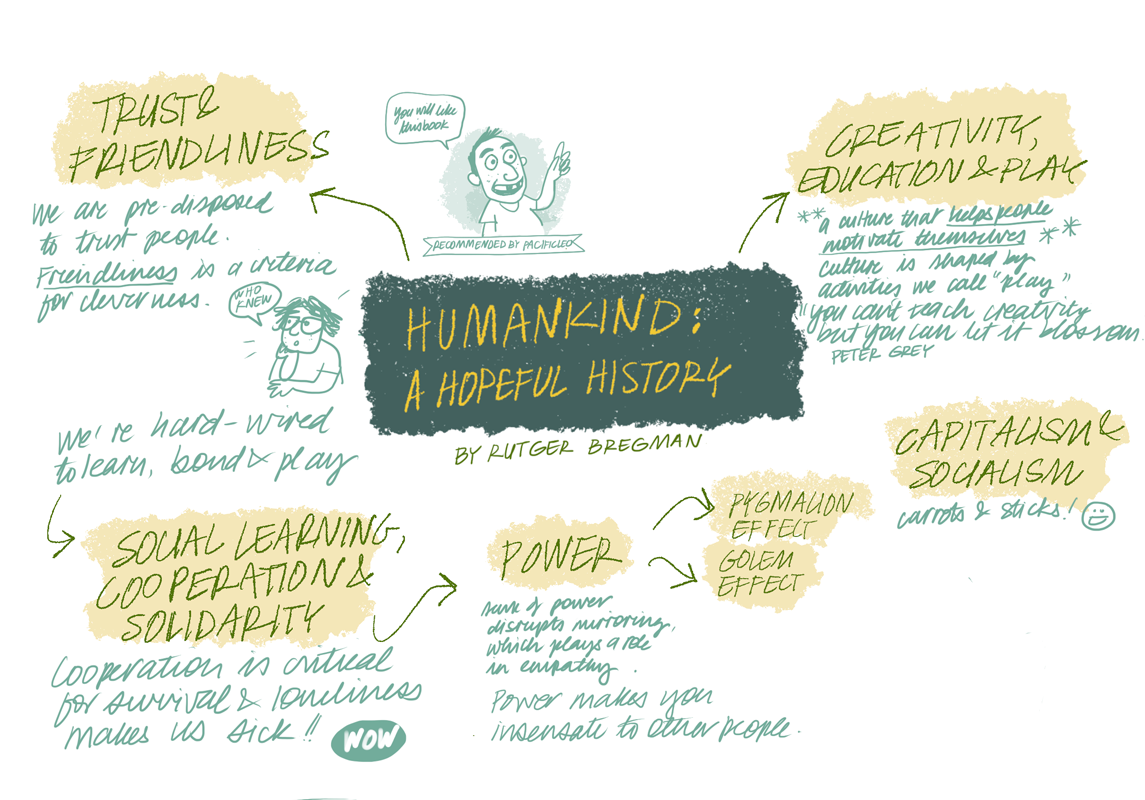 TRUST &
FRIENDLINESS
We are pre-disposed
to trust people.
Friendliness is a criteria
for cleverness.
WHO
KNEW
You will like
this book
RECOMMENDED BY PACIFICLEO
HUMANKIND:
A HOPEFUL HISTORY
BY RUTGER BREGMAN
CREATIVITY,
EDUCATION & PLAY
**a culture that helps people
motivate themselves **
culture is shaped by
activities we call "play"
"you can't teach creativity
but you can let it blossom
PETER GREY
CAPITALISM &
SOCIALISM
carrots & sticks!
We're hard-wired
to learn, bond & play
SOCIAL LEARNING,
COOPERATION &
SOLIDARITY
Cooperation is critical
for survival & loneliness
makes us sick!!
WOW
POWER
of power
disrupts mirroring,
which plays a role
in empathy.
Power makes you
insensate to other people.
PYGMALION
EFFECT
GOLEM
EFFECT